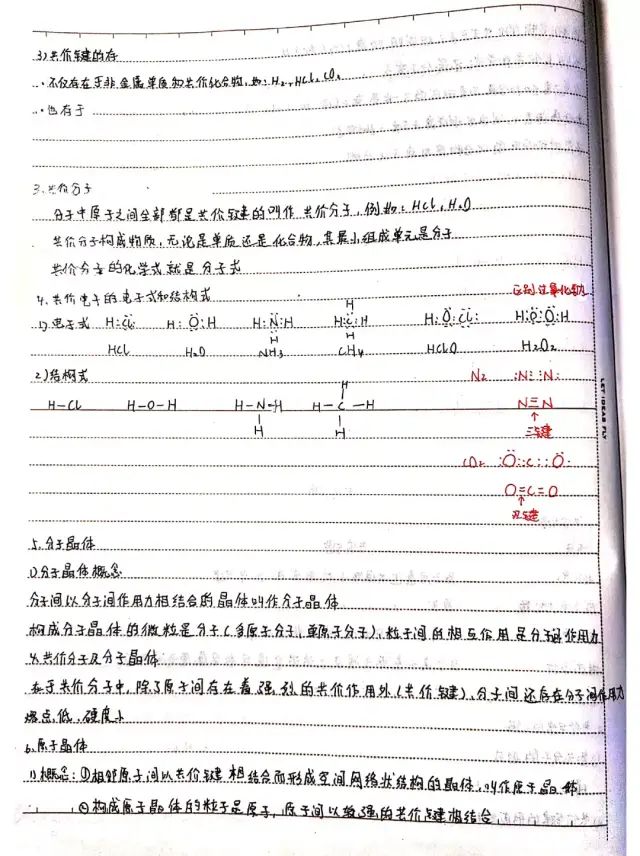 3)共价键的存
·不仅存在于非金属单质和共价化合物,如:H₂,HCl,CO₂
·也有于
3.共价分子
分子中原子之间全部都是共价键的叫作共价分子,例如:HCl,H₂O
共价分子构成物质,无论是单质还是化合物,其最小组成单元是分子
共价分子的化学式就是分子式
4.共价电子的电子式和结构式 区别过氧化
1)电子式 H:Cl: H:O:H H:N:H H:C:H H:O:Cl: H:O:O:H
H H H
HCl H₂O NH₃ CH₄ HClO H₂O₂
2)结构式 N₂ :N⋮⋮N:
H-Cl H-O-H H-N-H H-C-H N≡N
H H H
↑
三键
CO₂ :O::C::O:
O=C=O
↑
双键
LET IDEAS FLY
5.分子晶体
1)分子晶体概念
分子间以分子间作用力相结合的晶体叫作分子晶体
构成分子晶体的微粒是分子(多原子分子,单原子分子),粒子间的相互作用是分子间作用力
共价分子及分子晶体
在于共价分子中,除了原子间存在着强烈的共价作用外(共价键),分子间还存在分子间作用力
熔点低,硬度小
6.原子晶体
1)概念:①相邻原子间以共价键相结合而形成空间网络状结构的晶体,叫作原子晶体
②构成原子晶体的粒子是原子,原子间以较强的共价键相结合